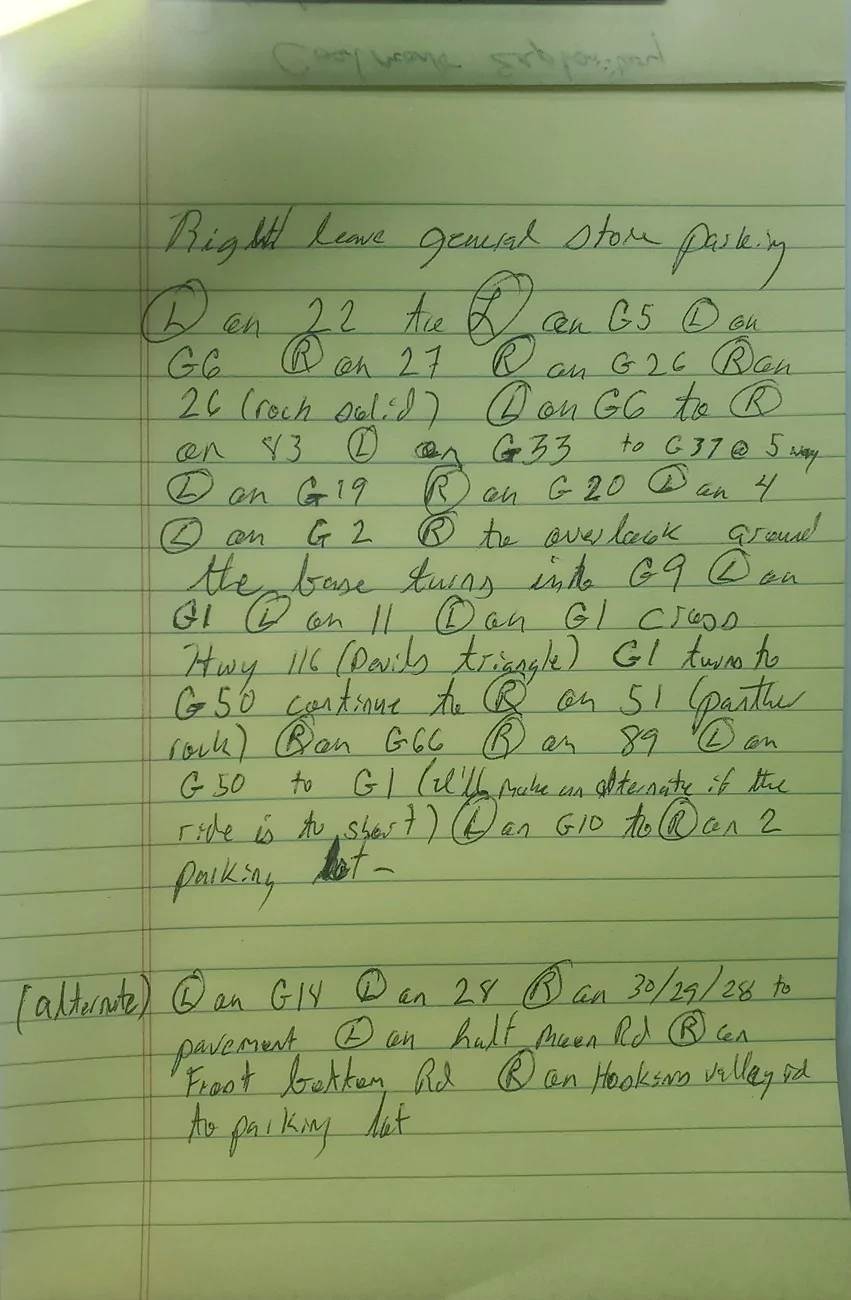 Right leave general store parking
Ⓛ on 22 to Ⓛ on G5 Ⓛ on
G6 Ⓡ on 27 Ⓡ on G26 Ⓡ on
26 (rock solid) Ⓛ on G6 to Ⓡ
on 83 Ⓛ on G33 to G37 @ 5 way
Ⓛ on G19 Ⓡ on G20 Ⓛ on 4
Ⓛ on G2 Ⓡ to overlook around
the base turns into G9 Ⓛ on
G1 Ⓛ on 11 Ⓛ on G1 cross
Hwy 116 (Devils triangle) G1 turns to
G50 continue to Ⓡ on 51 (panther
rock) Ⓡ on G66 Ⓡ on 89 Ⓛ on
G50 to G1 (I'll make an alternate if the
ride is to short) Ⓛ on G10 to Ⓡ on 2
parking lot -
(alternate) Ⓛ on G18 Ⓛ on 28 Ⓡ on 30/29/28 to
pavement Ⓛ on half moon Rd Ⓡ on
Frost bottom Rd Ⓡ on Hoskins valley rd
to parking lot